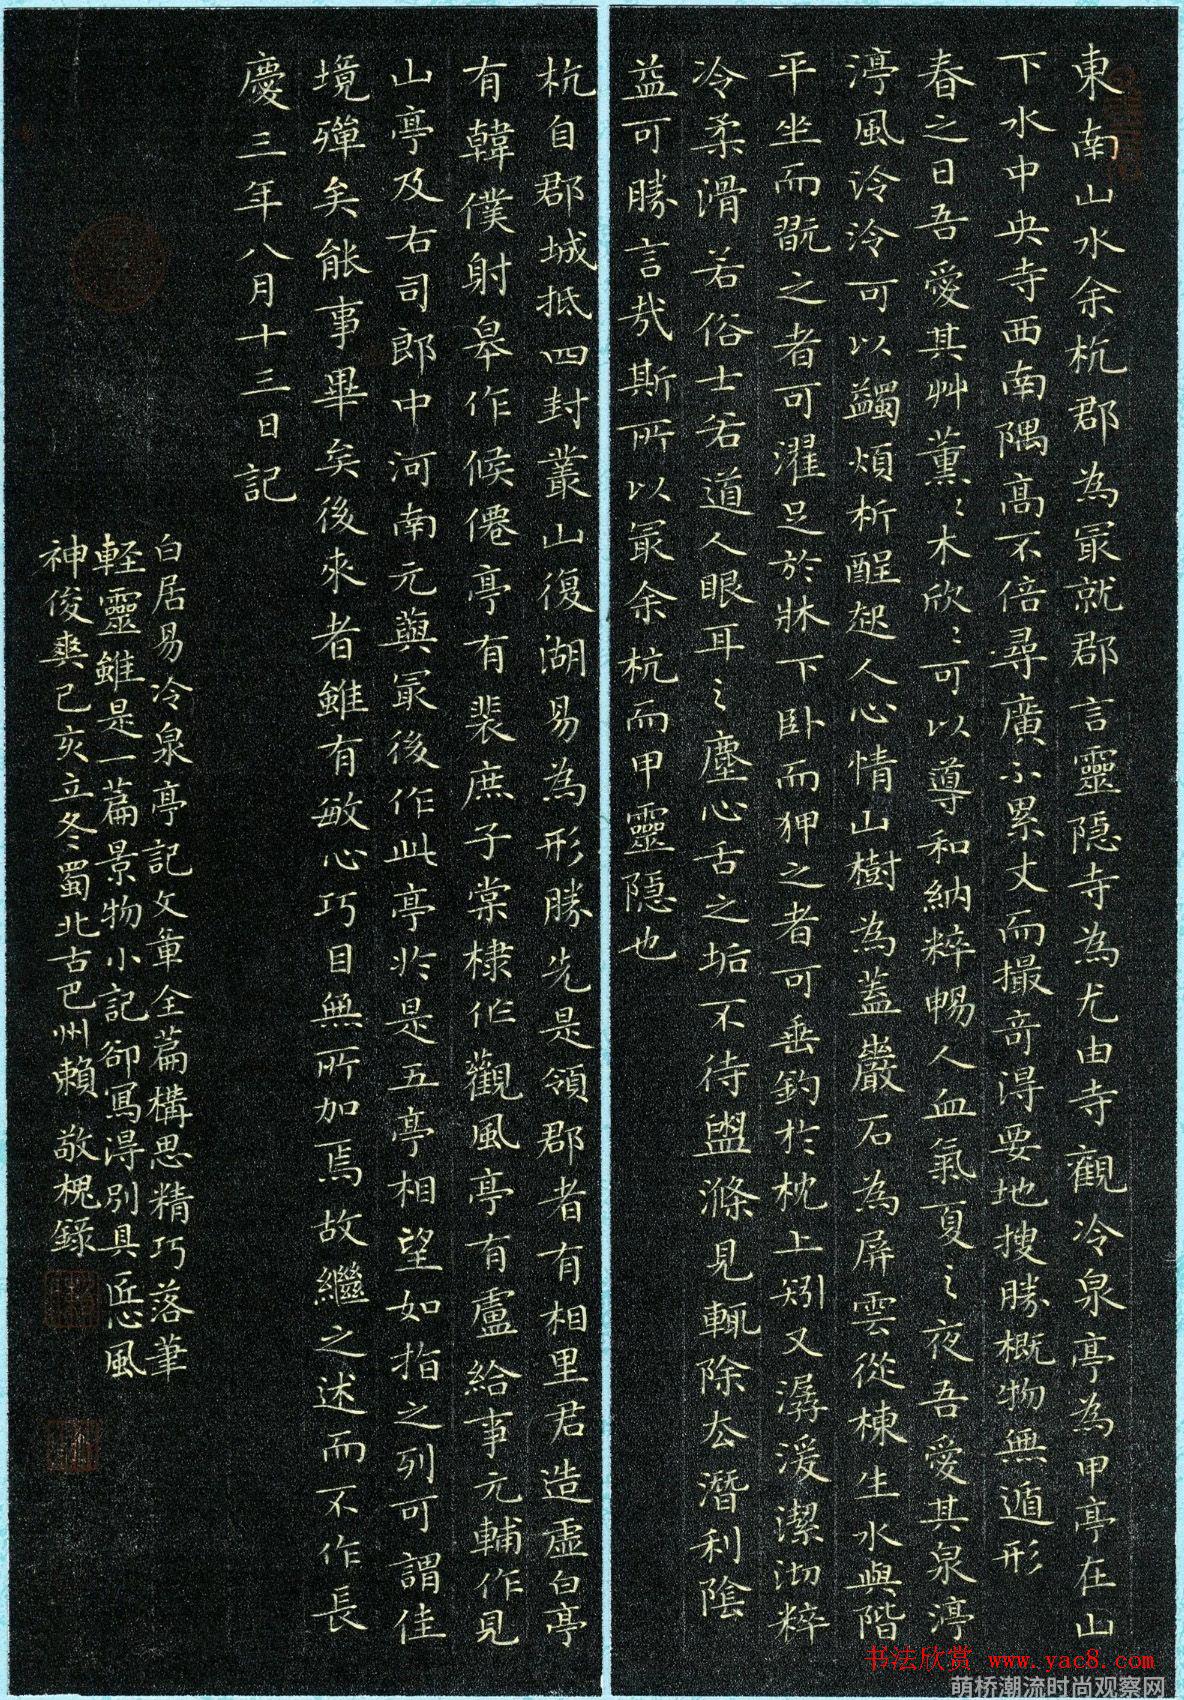 東南山水余杭郡為冣就郡言靈隐寺為尤由寺觀冷泉亭為甲亭在山
下水中央寺西南隅高不倍尋廣不累丈而撮奇淂要地搜勝概物無遁形
春之日吾愛其艸薰〻木欣〻可以導和納粹暢人血氣夏之夜吾愛其泉渟
渟風泠泠可以蠲煩析酲起人心情山樹為蓋巖石為屏雲從棟生水與階
平坐而翫之者可濯足於牀下卧而狎之者可垂釣於枕上矧又潺湲潔沏粹
冷柔滑若俗士若道人眼耳之塵心舌之垢不待盥滌見輒除去潛利陰
益可勝言哉斯所以冣余杭而甲靈隐也
杭自郡城抵四封叢山復湖易為形勝先是領郡者有相里君造虛白亭
有韓僕射皋作候僊亭有裴庶子棠棣作觀風亭有盧給事元輔作見
山亭及右司郎中河南元藇冣後作此亭於是五亭相望如指之列可謂佳
境殫矣能事畢矣後來者雖有敏心巧目無所加焉故繼之述而不作長
慶三年八月十三日記
白居易冷泉亭記文章全篇構思精巧落筆
軽靈雖是一篇景物小記卻寫淂別具匠心風
神俊爽己亥立冬蜀北古巴州賴敬槐錄
书法欣赏 www.yac8.com
萌桥潮流时尚观察网